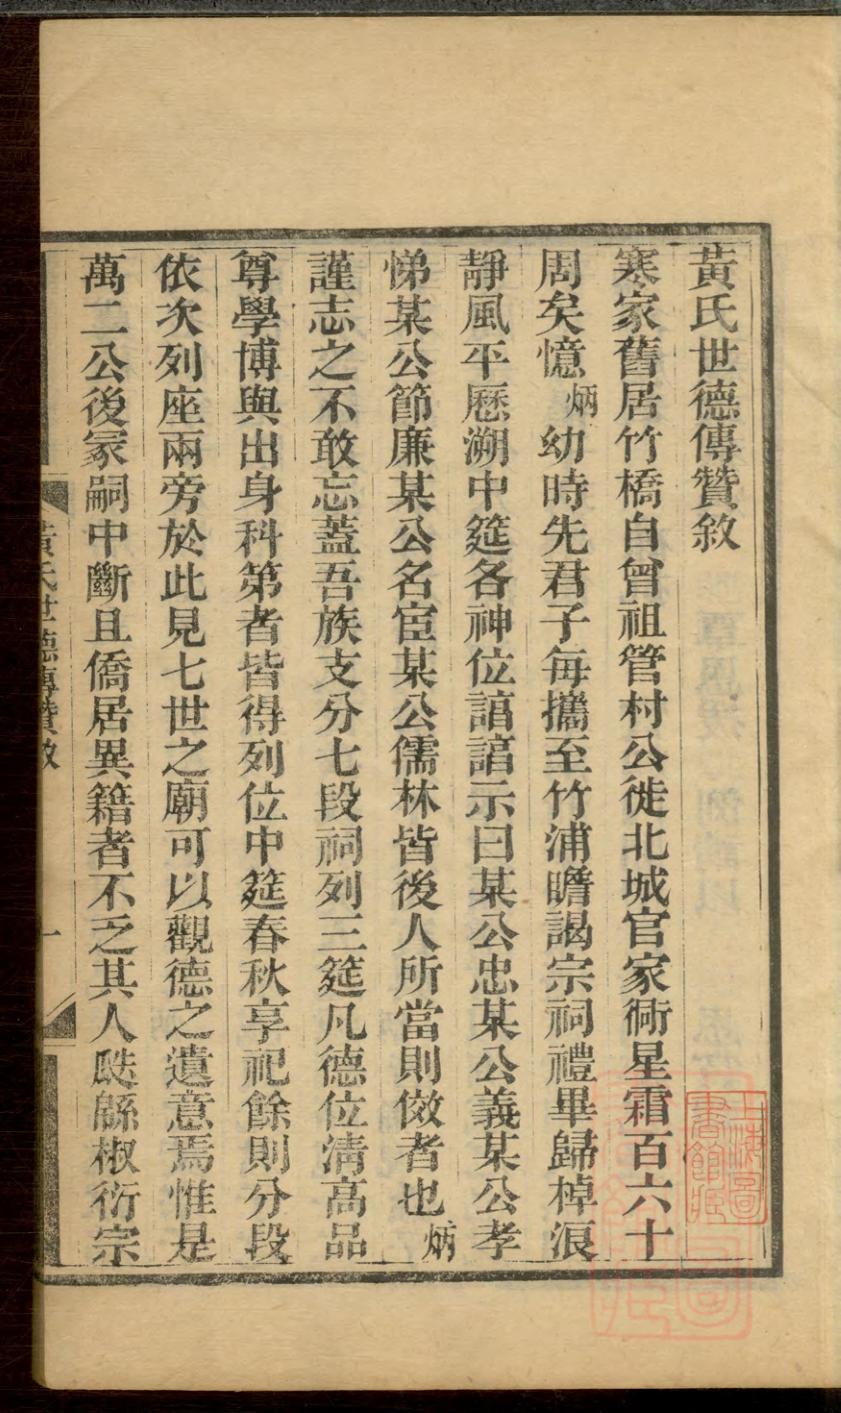 黃氏世德傳贊敘
寒家舊居竹橋自曾祖管村公徙北城官家衖星霜百六十
周矣憶炳幼時先君子每攜至竹浦瞻謁宗祠禮畢歸棹浪
靜風平歷溯中筵各神位諳諳示曰某公忠某公義某公孝
悌某公節廉某公名宦某公儒林皆後人所當則傚者也炳
謹志之不敢忘蓋吾族支分七段祠列三筵凡德位清高品
尊學博與出身科第者皆得列位中筵春秋享祀餘則分段
依次列座兩旁於此見七世之廟可以觀德之遺意焉惟是
萬二公後冢嗣中斷且僑居異籍者不乏其人瓞緜椒衍宗
黃氏世德傳贊敘
一
上海圖書館藏